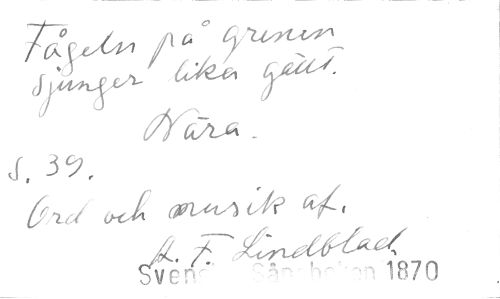 Fågeln på grenen
sjunger lika gällt.
Nära.
s. 39.
Ord och musik af.
A. F. Lindblad,
Svenska Sångboken 1870